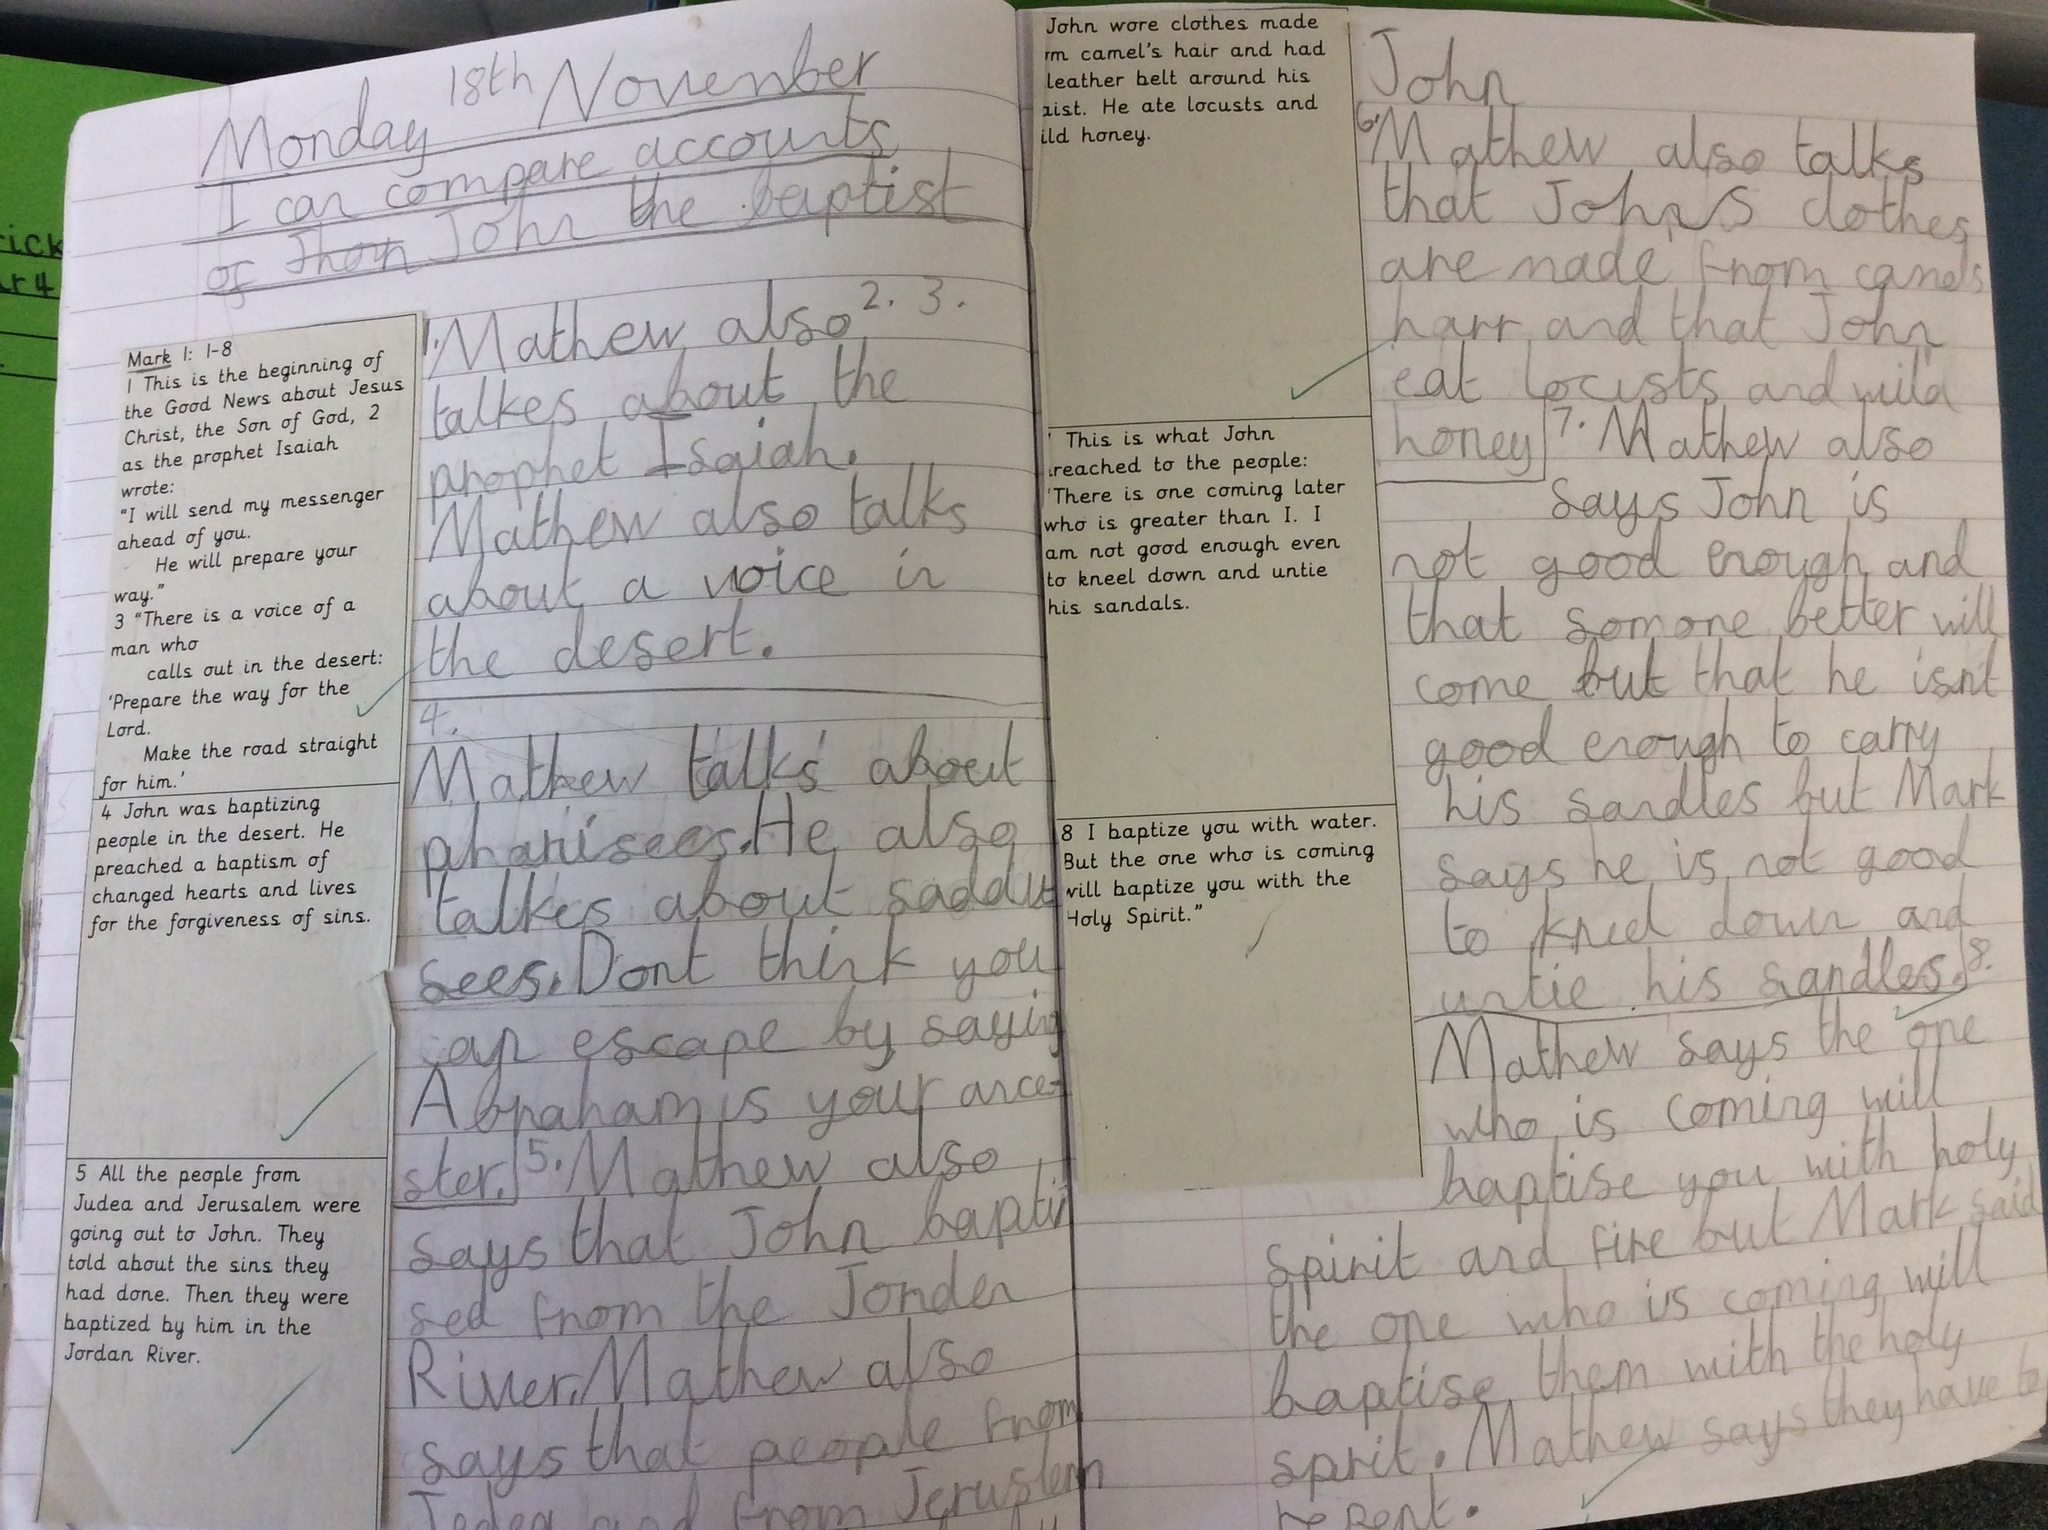 Monday 18th November
I can compare accounts
of Jhon John the baptist
Mark 1: 1-8
1 This is the beginning of
the Good News about Jesus
Christ, the Son of God, 2
as the prophet Isaiah
wrote:
"I will send my messenger
ahead of you.
He will prepare your
way."
3 "There is a voice of a
man who
calls out in the desert:
'Prepare the way for the
Lord.
Make the road straight
for him.'
1. Mathew also 2. 3.
talkes about the
prophet Isaiah.
Mathew also talks
about a voice in
the desert.
4 John was baptizing
people in the desert. He
preached a baptism of
changed hearts and lives
for the forgiveness of sins.
4.
Mathew talks about
pharisees. He also
talkes about saddu
sees. Dont think you
can escape by saying
Abraham is your ance-
ster.
5 All the people from
Judea and Jerusalem were
going out to John. They
told about the sins they
had done. Then they were
baptized by him in the
Jordan River.
5. Mathew also
says that John bapti
sed from the Jorden
River. Mathew also
says that people from
Jedea and from Jeruslem
John wore clothes made
camel's hair and had
leather belt around his
He ate locusts and
honey.
John
6. Mathew also talks
that John's clothes
are made from camels
harr and that John
eat locusts and wild
honey
This is what John
to the people:
'There is one coming later
who is greater than I. I
am not good enough even
to kneel down and untie
his sandals.
7. Mathew also
says John is
not good enough and
that somone better will
come but that he isn't
good enough to carry
his sandles but Mark
says he is not good
to kneel down and
untie his sandles.
8 I baptize you with water.
But the one who is coming
will baptize you with the
Holy Spirit."
8.
Mathew says the one
who is coming will
baptise you with holy
spirit and fire but Mark said
the one who is coming will
baptise them with the holy
spirit. Mathew says they have to
repent.